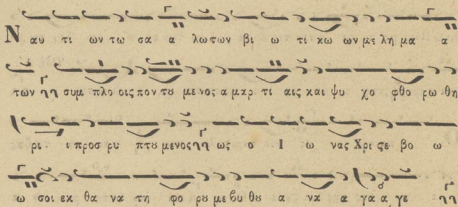 Ναυ τι ων τω σα α λω των βι ω τι κω ων με λη μα α
των συμ πλο οις πον του με νος α μαρ τι αις και ψυ χο φθο ρω θη
ρι ι προσ ρυ πτου μενος ως ο Ι ω νας Χρι ϛε βο ω
ω σοι εκ θα να τη φο ρου με βυ θου α να α γα α γε